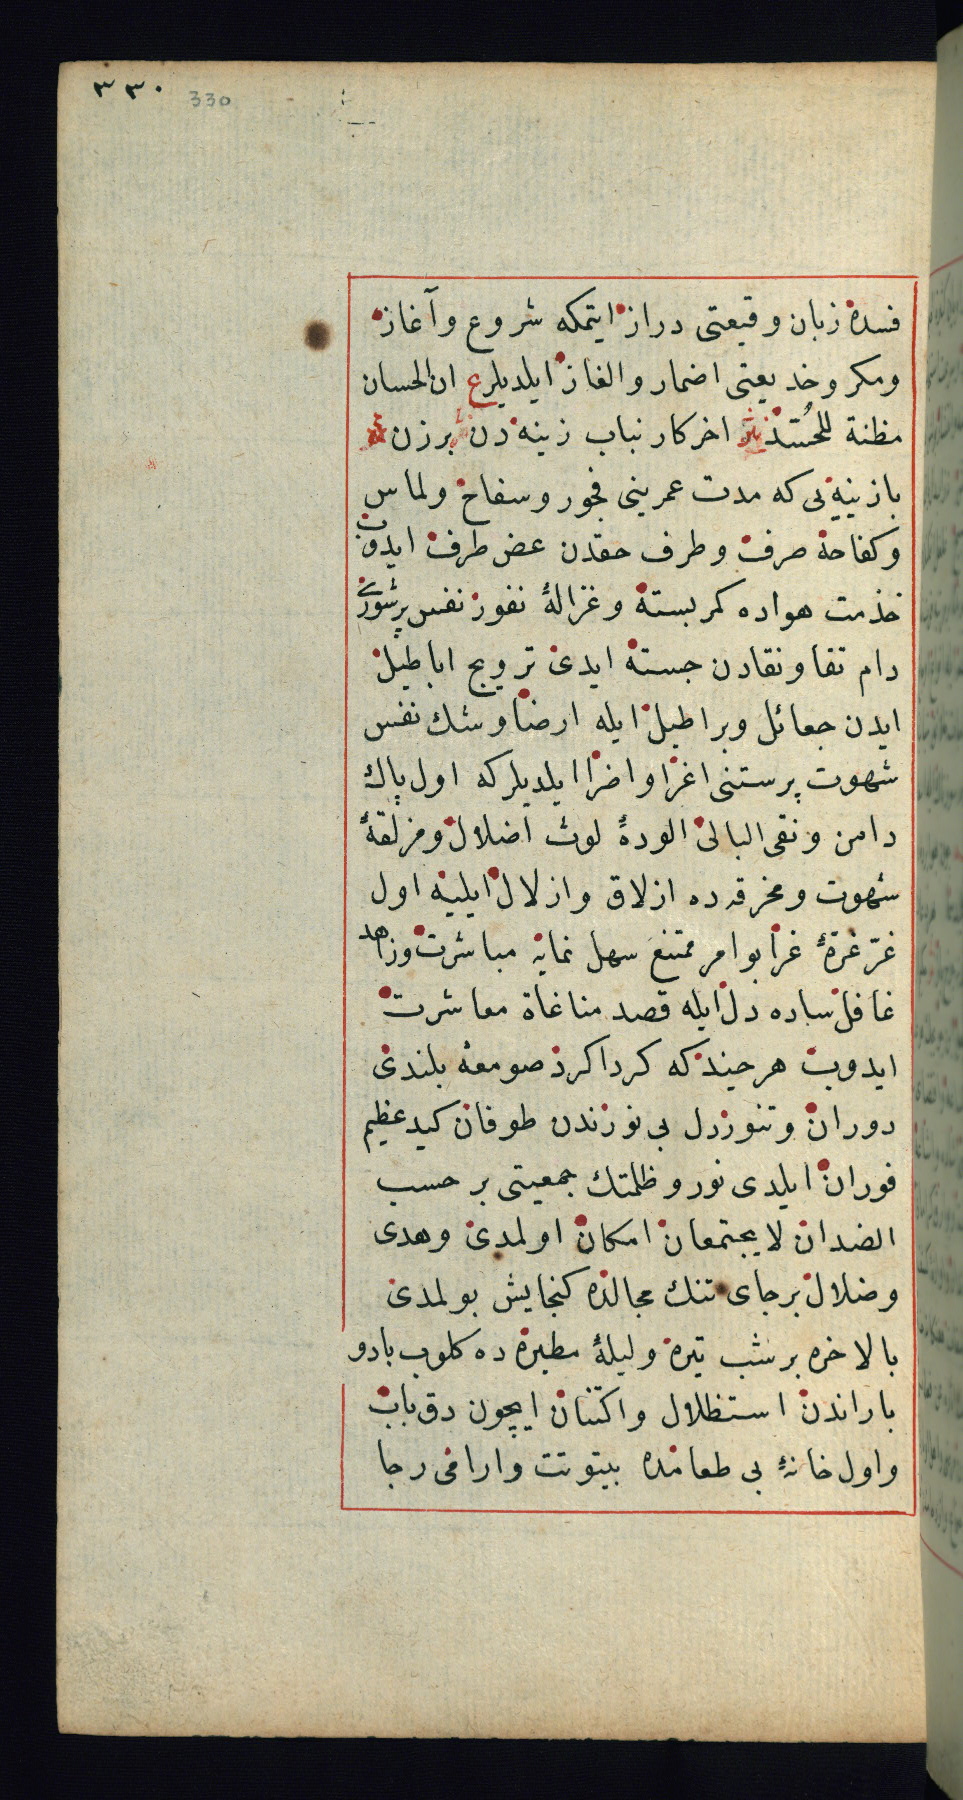 ٣٣٠ 330
فسده زبان وقیعتی دراز ایتمکه شروع وآغاز
ومکر وخدیعتی اضمار والغاز ایلدیلر ع ان الحسان
مظنة للحُسّد نثر اخرکار نباب زینه دن برزن
بازینیه یی که مدت عمرینی فجور وسفاح ولماس
وکفاحه صرف وطرف حقدن غض طرف ایدوب
خذمت هواده کمر بسته وغزالهٔ نفور نفس پرشوری
دام تقا ونقادن جسته ایدی ترویج اباطیل
ایدن جعائل وبراطیل ایله ارضا وشك نفس
شهوت پرستنی اغرا واضرا ایلدیلر که اول پاك
دامن ونقی البالی الودهٔ لوث اضلال ومزلقهٔ
شهوت ومخرقه ده ازلاق وازلال ایلیه اول
غرّ غرّهٔ غرا بو امر ممتنع سهل نمایه مباشرت وزاهد
غافل ساده دل ایله قصد مناغاة معاشرت
ایدوب هر چند که کرداکرد صومعهٔ بلندی
دوران وتنور دل بی نورندن طوفان کید عظیم
فوران ایلدی نور وظلمتك جمعیتی بر حسب
الضدان لا یجتمعان امکان اولمدی وهدی
وضلال بر جای تنك مجالده کنجایش بولمدی
بالاخره بر شب تیره ولیلهٔ مطیره ده کلوب بادو
باراندن استظلال واکتنان ایچون دق باب
واول خانهٔ بی طعامده بیتوتت وارامی رجا